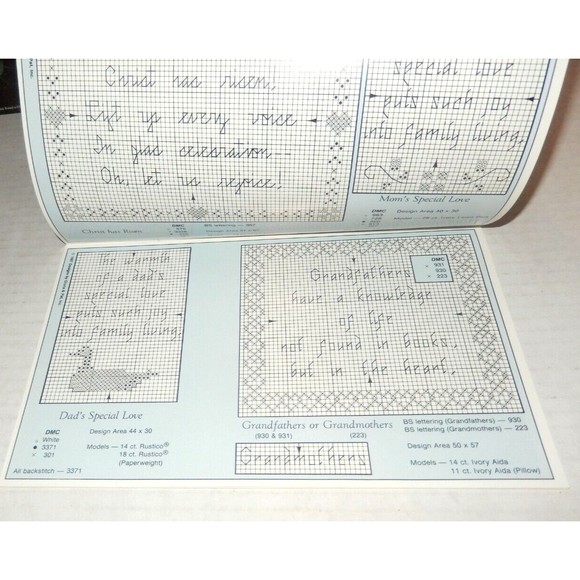 Christ has risen,
Lift up every voice
In glad celebration--
Oh, let us rejoice,
Christ has Risen
BS lettering —
Design Area
special love
puts such joy
into family living.
Mom's Special Love
DMC
Design Area
The warmth
of a dad's
special love
puts such joy
into family living.
Dad's Special Love
DMC
White
3371
× 301
Design Area 44 x 30
Models — 14 ct. Rustico®
18 ct. Rustico®
(Paperweight)
All backstitch — 3371
Grandfathers
have a knowledge
of life
not found in books,
but in the heart.
DMC
931
930
× 223
Grandfathers or Grandmothers
(930 & 931) (223)
Grandmothers
BS lettering (Grandfathers) — 930
BS lettering (Grandmothers) — 223
Design Area 50 x 57
Models — 14 ct. Ivory Aida
11 ct. Ivory Aida (Pillow)